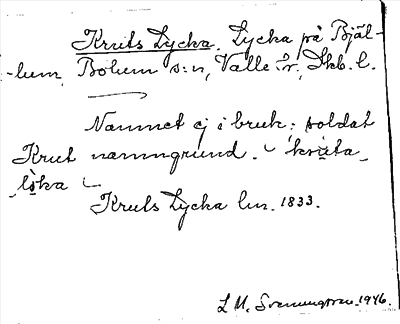 Kruts Lycka. Lycka på Bjäl-
-lum, Bolum s:n, Valle hr, Skb. l.
Namnet ej i bruk; soldat
Krut namngrund.
Kruts Lycka lm. 1833.
L M. Svenungsson. 1946.